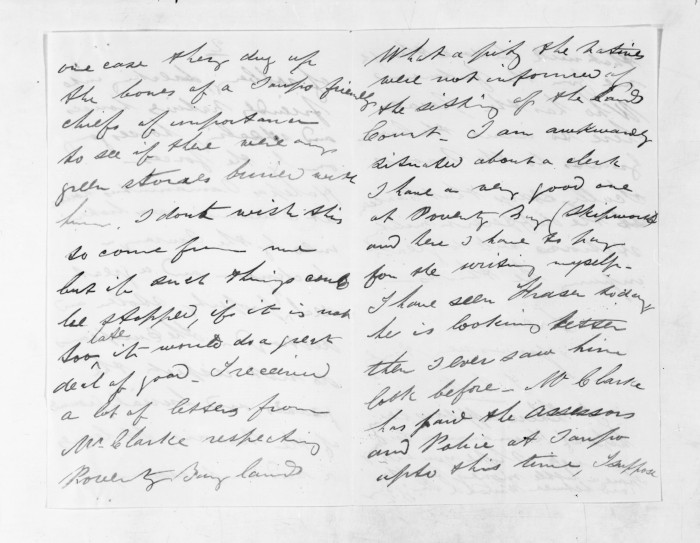 one case they dug up
the bones of a Taupo friendly
chiefs of importance
to see if there were any
green stones buried with
him. I dont wish this
to come from me
but if such things could
be stopped, if it is not
too late it would do a great
deal of good. I received
a lot of letters from
Mr Clarke respecting
Poverty Bay lands
What a pity the natives
were not informed of
the sitting of the Land
Court. I am awkwardly
situated about a clerk
I have a very good one
at Poverty Bay (Skipworth
and here I have to pay
for the writing myself.
I have seen Fraser today
he is looking better
then I ever saw him
look before. Mr Clarke
has paid the assessors
and Police at Taupo
upto this time, I suppose